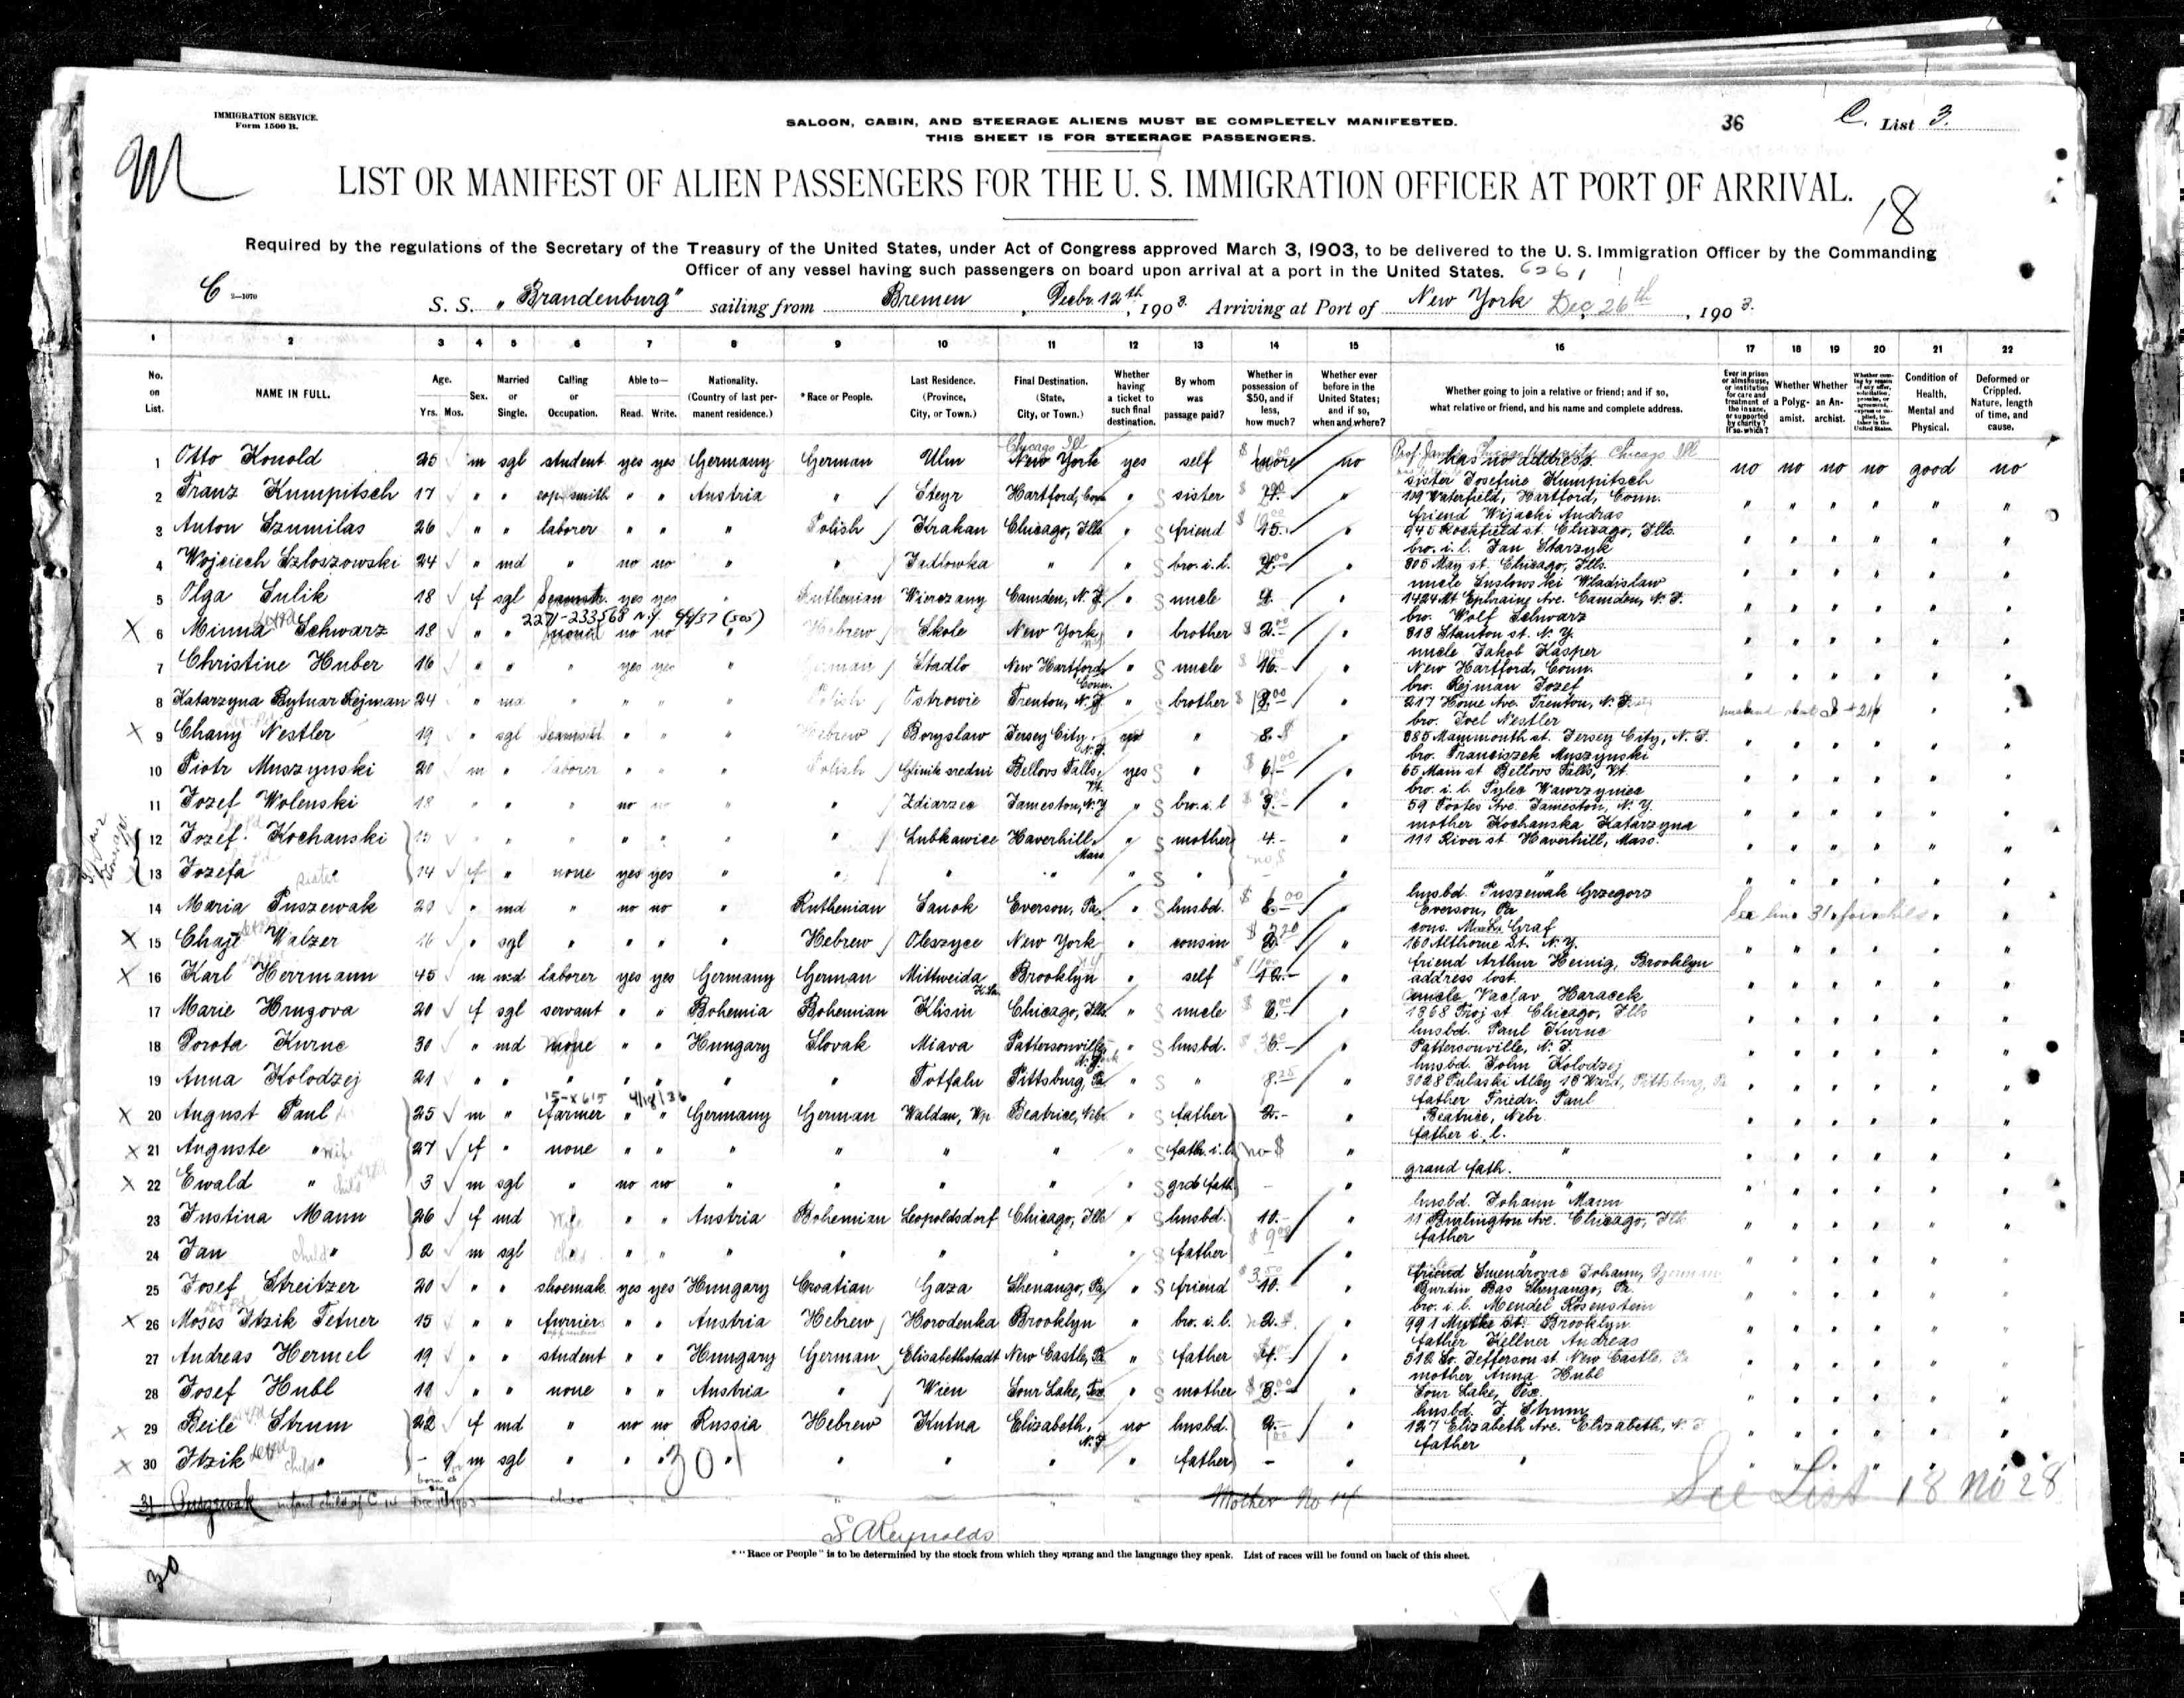 IMMIGRATION SERVICE.
Form 1500 B.
SALOON, CABIN, AND STEERAGE ALIENS MUST BE COMPLETELY MANIFESTED.
THIS SHEET IS FOR STEERAGE PASSENGERS.
36
C. List 3.
M
LIST OR MANIFEST OF ALIEN PASSENGERS FOR THE U. S. IMMIGRATION OFFICER AT PORT OF ARRIVAL.
18
Required by the regulations of the Secretary of the Treasury of the United States, under Act of Congress approved March 3, 1903, to be delivered to the U. S. Immigration Officer by the Commanding
Officer of any vessel having such passengers on board upon arrival at a port in the United States. 6261
C 2—1070
S. S. „Brandenburg" sailing from Bremen, Decbr. 12th, 1903. Arriving at Port of New York Dec. 26th, 1903.
1 2 3 4 5 6 7 8 9 10 11 12 13 14 15 16 17 18 19 20 21 22
No. on List.
NAME IN FULL.
Age. Yrs. Mos.
Sex.
Married or Single.
Calling or Occupation.
Able to— Read. Write.
Nationality. (Country of last permanent residence.)
* Race or People.
Last Residence. (Province, City, or Town.)
Final Destination. (State, City, or Town.)
Whether having a ticket to such final destination.
By whom was passage paid?
Whether in possession of $50, and if less, how much?
Whether ever before in the United States; and if so, when and where?
Whether going to join a relative or friend; and if so, what relative or friend, and his name and complete address.
Ever in prison or almshouse, or institution for care and treatment of the insane, or supported by charity? If so, which?
Whether a Polygamist.
Whether an Anarchist.
Condition of Health, Mental and Physical.
Deformed or Crippled. Nature, length of time, and cause.
Chicago Ill
1 Otto Konold 25 m sgl student yes yes Germany German Ulm New York yes self more no has no address Chicago Ill no no no no good no
2 Franz Kumpitsch 17 " " smith " " Austria " Steyr Hartford, Conn " sister " sister Josefine Kumpitsch
129 Waterfield, Hartford, Conn.
3 Anton Szumilas 26 " " laborer " " " Polish Krakau Chicago, Ills " friend 15. " friend Wijacki Andras
945 Rockfield st. Chicago, Ills.
4 Wojciech Szloszowski 24 " md " no no " " Jadlowka " " bro. i. l. " bro. i. l. Jan Starzyk
805 May st. Chicago, Ills.
5 Olga Sulik 18 f sgl yes yes " Ruthenian Camden, N. J. " uncle " uncle Wladislaw
1424 Mt Ephraim Ave. Camden, N. J.
2271-233568
6 Minna Schwarz 18 " " no no " Hebrew Skole New York " brother $ 2.00 " bro. Wolf Schwarz
313 Stanton st. N. Y.
7 Christine Huber 16 " " " yes yes " German Stadlo New Hartford, Conn. " uncle 16.- " uncle Jakob Kasper
New Hartford, Conn.
8 Katarzyna Bytnar Rejman 24 " md " " " " Polish Ostrowie Trenton, N. J. " brother " bro. Rejman Jozef
217 Home Ave. Trenton, N. J.
9 Chany Nestler 19 " sgl " " " Hebrew Boryslaw Jersey City, N. J. " 8. " bro. Joel Nestler
385 Mammouth st. Jersey City, N. J.
10 Piotr Muszynski 20 m " laborer " " " Polish Glinik sredni Bellows Falls, Vt. yes " 6.- " bro. Franciszek Muszynski
65 Main st Bellows Falls, Vt.
11 Jozef Wolenski 18 " " " no no " " Zdiarzec Jameston, N. Y " bro. i. l " bro. i. l. Tylec Wawrzyniec
59 Footes Ave. Jameston, N. Y.
12 Jozef Kochanski 15 " " " " " " " Lubkawice Haverhill, Mass " mother 4.- " mother Kochanska Katarzyna
111 River st. Haverhill, Mass.
13 Jozefa sister 14 f " none yes yes " " " " " " - " "
14 Maria Puszewak 20 " md " no no " Ruthenian Sanok Everson, Pa. " husbd. " husbd. Puszewak Grzegorz
Everson, Pa See line 31 for child
15 Walzer 16 " sgl " " " " Hebrew Oleszyce New York " cousin " cous. Graf
N. Y.
16 Karl Herrmann 45 m md laborer yes yes Germany German Mittweida Brooklyn " self " friend Arthur Heinig, Brooklyn
address lost.
17 Marie Hrugova 20 f sgl servant " " Bohemia Bohemian Klisin Chicago, Ills " uncle " uncle Vaclav Haracek
1368 Troj st Chicago, Ills
18 Dorota Kurnc 30 " md none " " Hungary Slovak Miava Pattersonville, N. J. " husbd. " husbd. Paul Kurnc
Pattersonville, N. J.
19 Anna Kolodzej 21 " " " " " " " Totfalu Pittsburg, Pa " " 8.25 " husbd. John Kolodzej
3028 Pulaski Alley 18 Ward, Pittsburg, Pa
15-x615 4/18/36
20 August Paul 25 m " farmer " " Germany German Waldau, Wp Beatrice, Nebr. " father 2.- " father Friedr. Paul
Beatrice, Nebr.
21 Auguste " wife 27 f " none " " " " " " " fath. i. l. no $ " father i. l. "
22 Ewald " child 3 m sgl " no no " " " " " grdfath. - " grand fath. "
23 Justina Mann 26 f md wife " " Austria Bohemian Leopoldsdorf Chicago, Ills " husbd. 10.- " husbd. Johann Mann
11 Burlington Ave. Chicago, Ills
24 Jan child " 2 m sgl child " " " " " " " father " father "
25 Josef Streitzer 20 " " shoemak. yes yes Hungary Croatian Gaza Shenango, Pa " friend 10. " friend Smendrovac Johann,
Shenango, Pa.
26 Moses Itzik Tetner 15 " " furrier " " Austria Hebrew Horodenka Brooklyn " bro. i. l. 2. " bro. i. l. Mendel Rosenstein
991 Brooklyn
27 Andreas Hermel 19 " " student " " Hungary German Elisabethstadt New Castle, Pa " father " father Kellner Andreas
512 So. Jefferson st. New Castle, Pa
28 Josef Hubl 11 " " none " " Austria " Wien Sour Lake, Tex " mother " mother Anna Hubl
Sour Lake, Tex.
29 Beile Strum 22 f md " no no Russia Hebrew Kutna Elizabeth, N. J. no husbd. 2.- " husbd. J. Strum
127 Elizabeth Ave. Elizabeth, N. J
30 Itzik child " - 9 m sgl " " " " " " " " father - " father "
301
31 Puszewak infant child of Mother No 14 See List 18 no 28
S A Reynolds
* "Race or People" is to be determined by the stock from which they sprang and the language they speak. List of races will be found on back of this sheet.
30